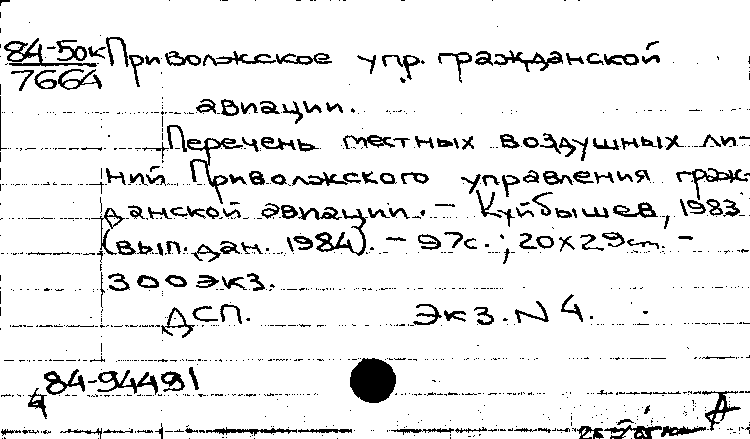 84-50к Приволжское упр. гражданской
7664
авиации.
Перечень местных воздушных ли-
ний Приволжского управления граж-
данской авиации. - Куйбышев, 1983
(вып. дан. 1984). - 97с.; 20х29см. -
300экз.
ДСП. Экз. N 4.
84-94491
4